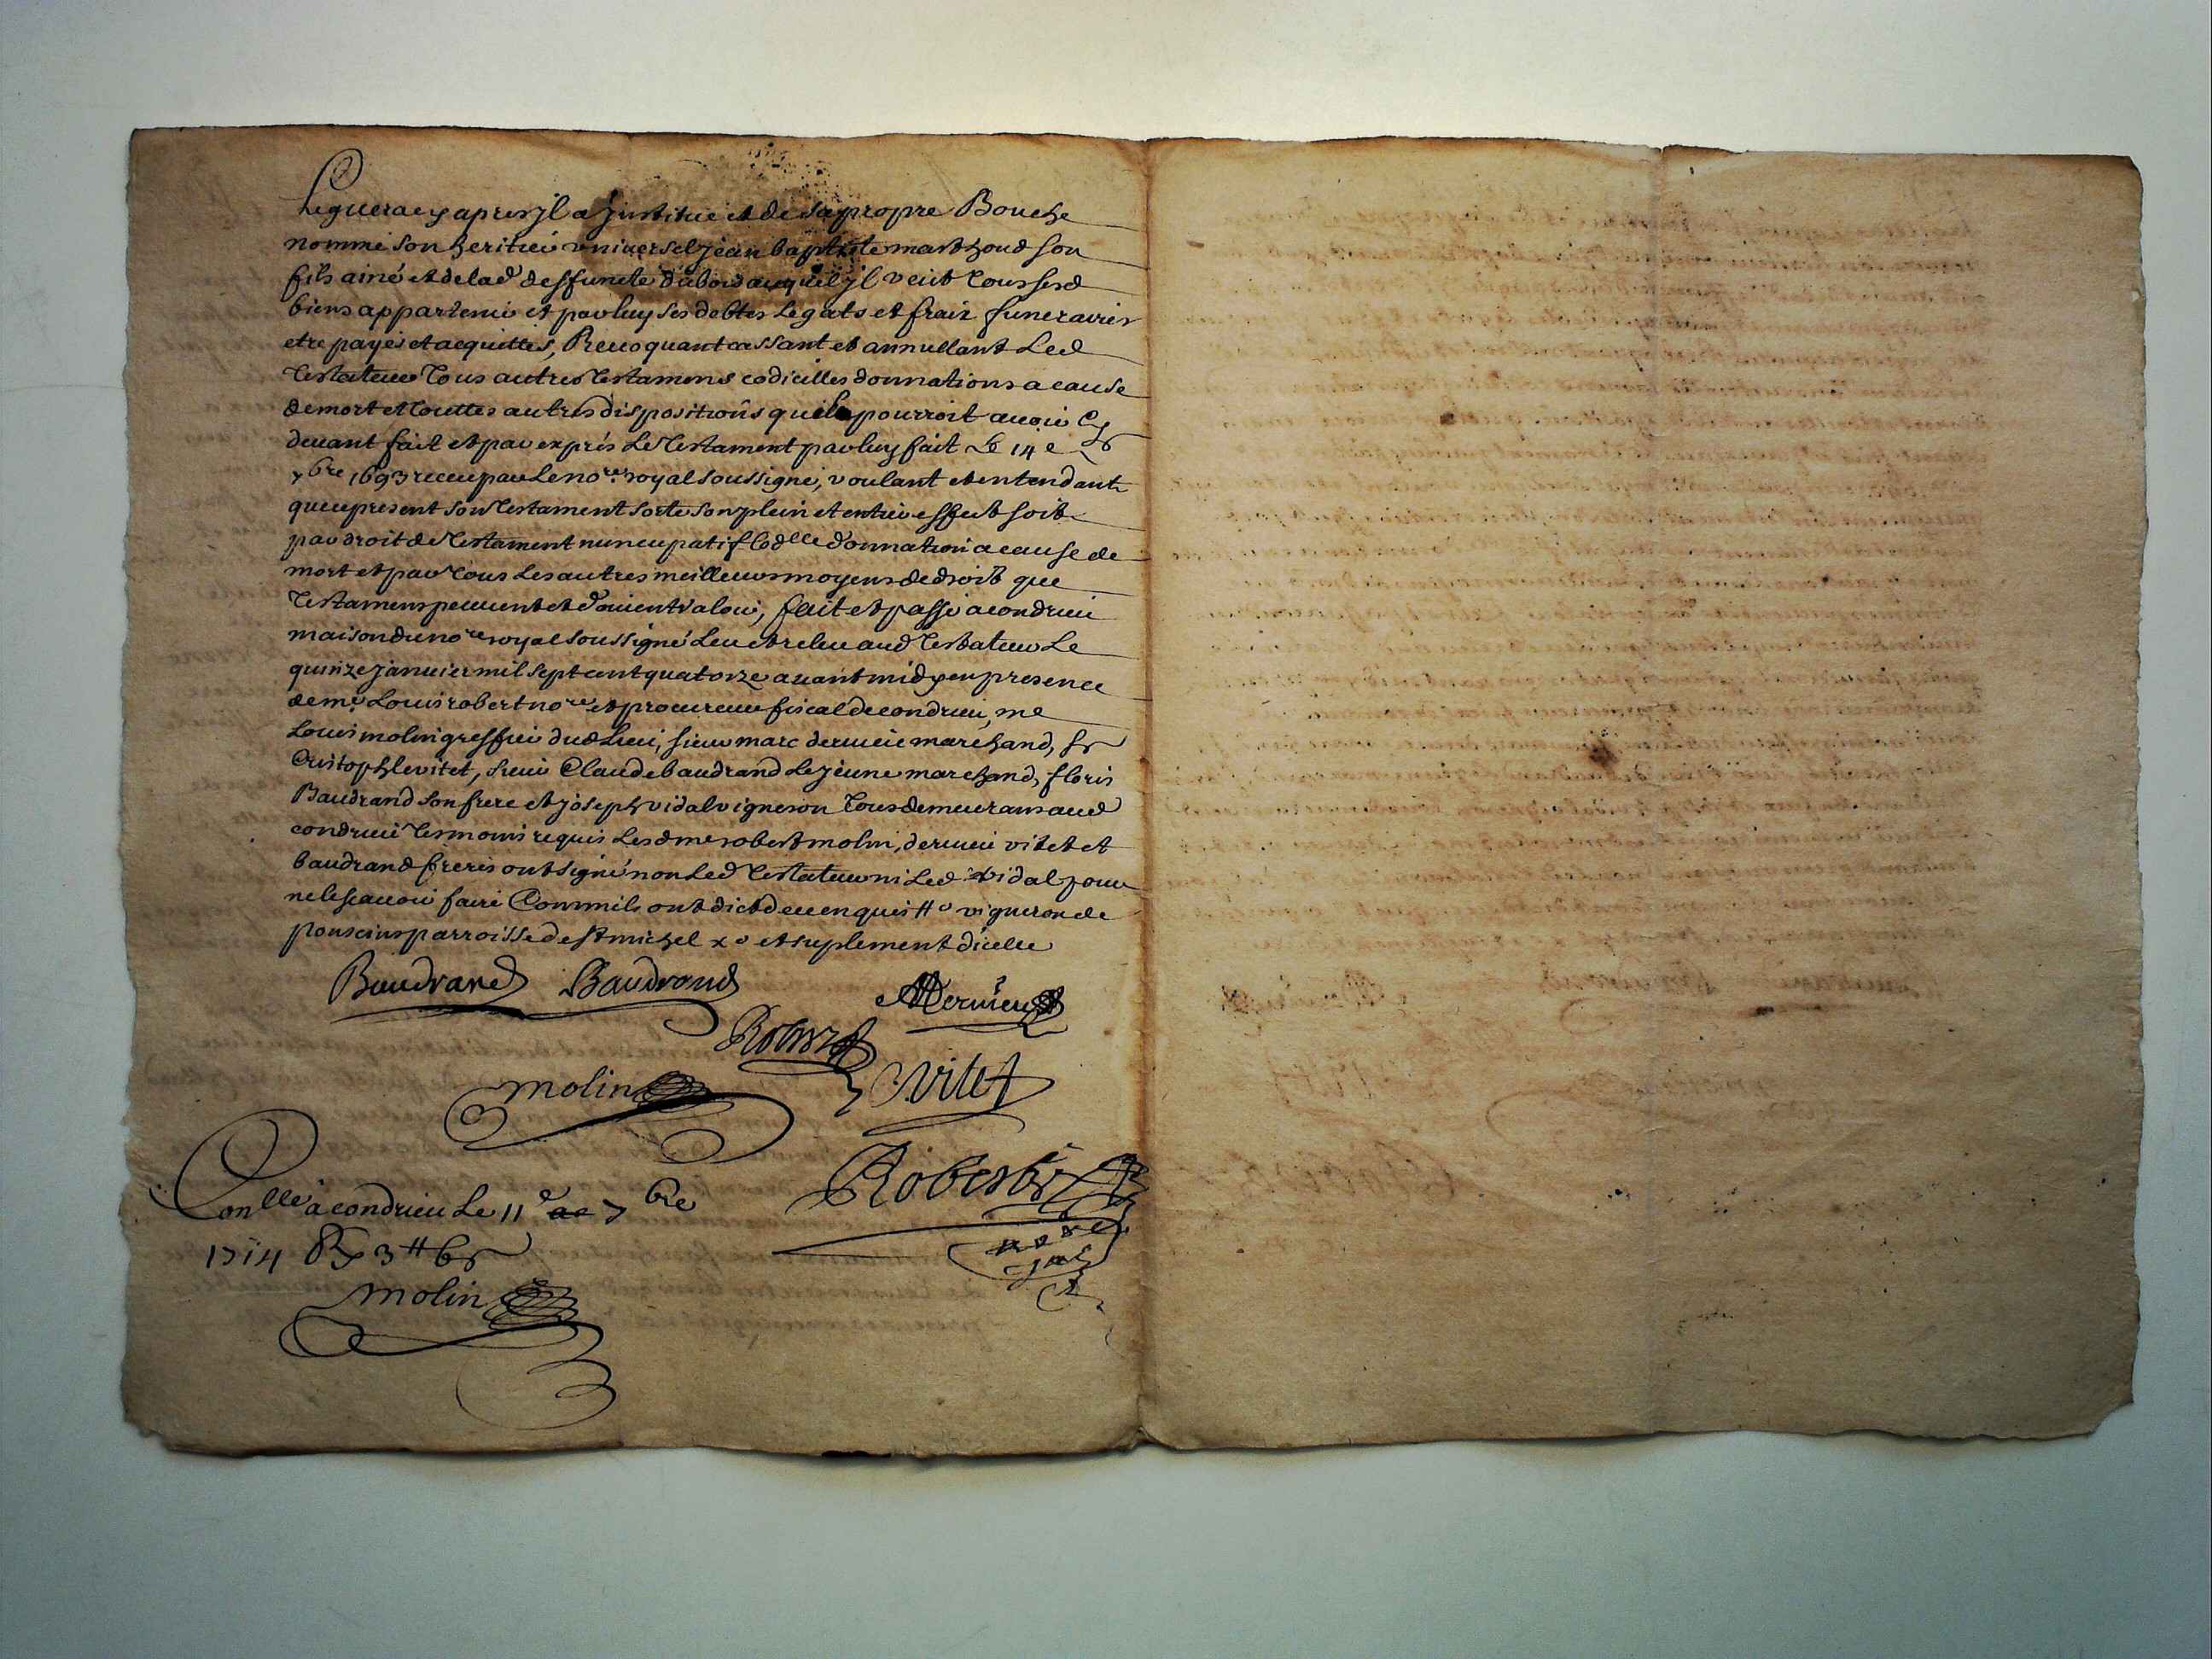 leguera cy apres jl a Justitué et de sa propre Bouche
nommé son heritier universel jean baptiste marthoud son
fils ainé et de lad deffuncte dubois auquel jl veut tous sesd
biens appartenir et par luy ses debtes legats et fraix funeraires
etre payés et acquittés, Revoquant cassant et annullant Led
Testateur Tous autres Testamens codicilles donnations a cause
de mort et Touttes autres dispositions quil pourroit avoir Cy
devant fait et par exprés Le Testament par luy fait Le 14e
xbre 1693 receu par Le nore royal soussigné, voulant et entendant
que ce present son Testament sorte son plein et entier effect soit
par droit de Testament nuncupatif Codlle donnation a cause de
mort et par Tous les autres meilleurs moyens de droit que
Testamens peuvent et doivent valoir, fait et passé a condrieu
maison du nore royal soussigné Leu et releu aud Testateur Le
quinze Janvier mil sept cent quatorze avant midy en presence
de me Louis robert nore et procureur fiscal de condrieu, me
Louis molin greffier dud Lieu, sieur marc dervieu marchand, sr
Cristophle vitet, sieur Claude baudrand le jeune marchand, floris
Baudrand son frere et joseph vidal vigneron Tous demeurans aud
condrieu Tesmoins requis Lesd mes robert molin, dervieu vitet et
baudrand freres ont signé non Led Testateur ni Led vidal pour
ne le scavoir faire Comm'ils ont dict de ce enquis # vigneron de
ponscins parroisse de st michel x et suplement dicelle
Baudrand Baudrand MDervieu
Robert
molin Vitet
Conllé a condrieu Le 11e 7bre
1714 R 3# 6s
Robert
nore
molin